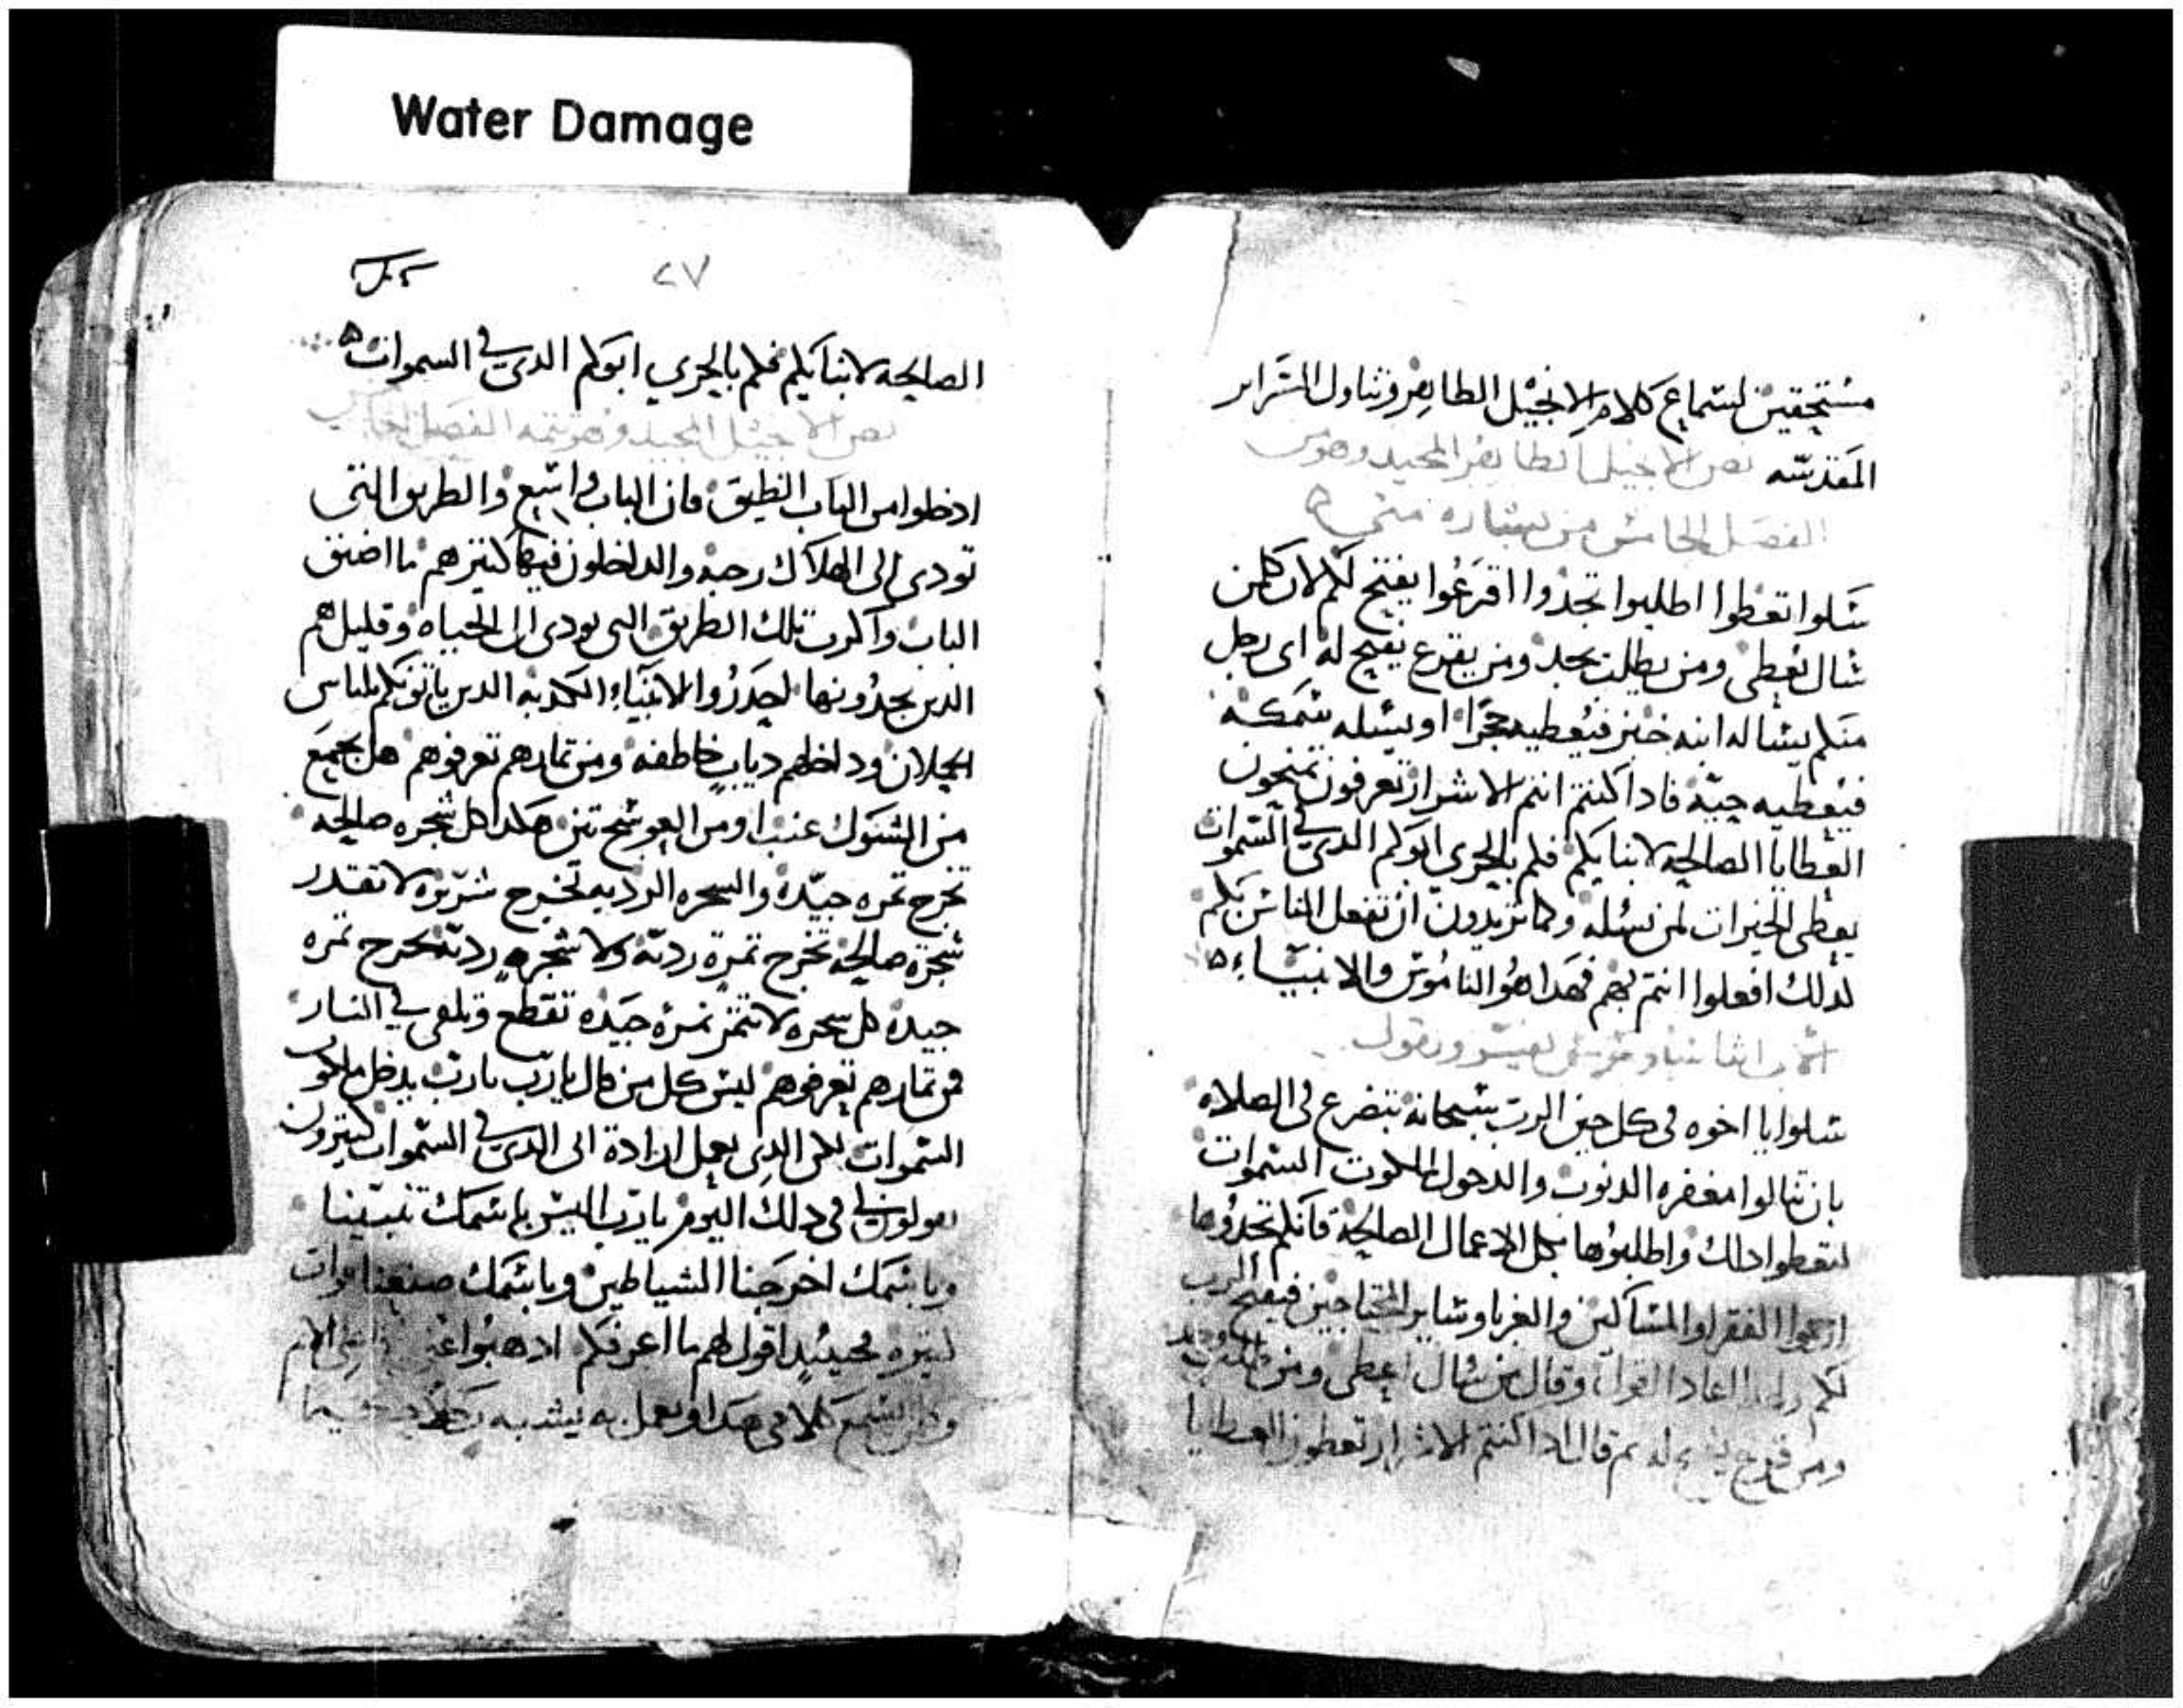 Water Damage
مستحقين لسماع كلام الانجيل الطاهر وتناول السراير
المقدسه نص الانجيل الطاهر المجيد وهو من
الفصل الخامس من بشاره متى
سلوا تعطوا اطلبوا تجدوا اقرعوا يفتح لكم لان كلمن
سال يعطى ومن يطلب يجد ومن يقرع يفتح له اى رجل
منكم يساله ابنه خبز فيعطيه حجرا او يسله سمكه
فيعطيه حيه فادا كنتم انتم الاشرار تعرفون تمنحون
العطايا الصالحه لابنايكم فلم بالحرى ابوكم الدى فى السموات
يعطى الخيرات لمن يسله وكما تريدون ان تفعل الناس بكم
لدلك افعلوا انتم بهم فهدا هو الناموس والانبياء
يفسر ويقول
سلوا يا اخوه فى كل حين الرب سبحانه بتضرع فى الصلاه
بان تنالوا مغفره الدنوب والدخول لملكوت السموات
لتعطوا دلك واطلبوها بكل الاعمال الصالحه فانكم تجدوها
ارحموا الفقرا والمساكين والغربا وساير المحتاجين فيفتح الرب
لكم اعاد القول وقال من سال اعطى ومن
ومن قرع له تم قال ادا كنتم الاشرار تعطون العطايا
٢٧
الصالحه لابنايكم فلم بالحرى ابوكم الدى فى السموات
نص الانجيل المجيد وهو تتمه الفصل الخامس
ادخلوا من الباب الضيق فان الباب واسع والطريق التى
تودى الى الهلاك رحبه والداخلون فيها كتير هم ما اضيق
الباب واكرب تلك الطريق التى تودى الى الحياه وقليل هم
الدين يجدونها احدروا الانبياء الكدبه الدين ياتونكم بلباس
الحملان وداخلهم دياب خاطفه ومن تمارهم تعرفوهم هل يجمع
من الشوك عنبا او من العوسج تين هكدا كل شجره صالحه
تخرج تمره جيده والشجره الرديه تخرج شريره لا تقدر
شجره صالحه تخرج تمره رديه ولا شجره رديه تخرج تمره
جيده كل شجره لا تتمر تمره جيده تقطع وتلقى فى النار
فمن تمارهم تعرفوهم ليس كل من قال يارب يارب يدخل ملكوت
السموات لكن الدى يعمل ارادة ابى الدى فى السموات كتيرون
يقولون لى فى دلك اليوم يارب اليس باسمك تنبينا
وباسمك اخرجنا الشياطين وباسمك صنعنا قوات
كتيره فحينيد اقول لهم ما اعرفكم ادهبوا عنى
يسمع كلامى هدا ويعمل به يشبه